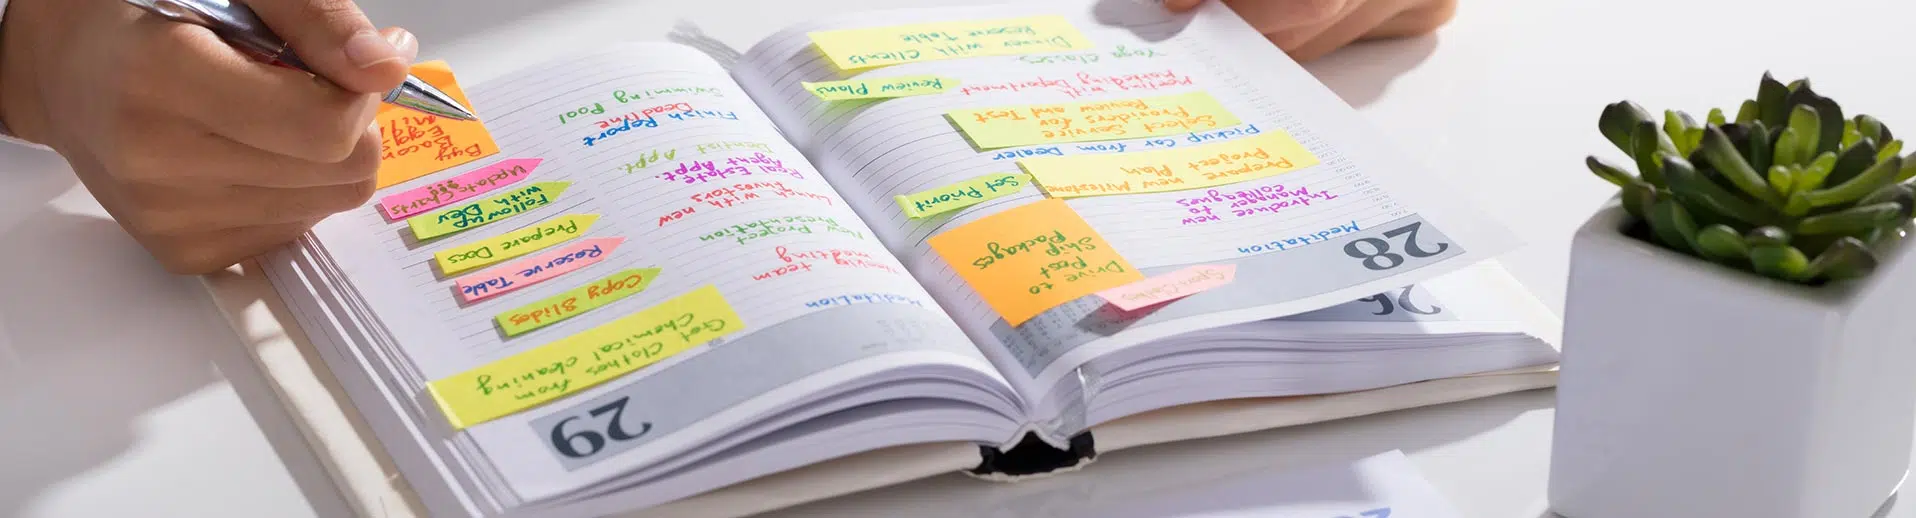 28
Meditation
Introduce new
Manager to
colleages
Prepare new Milestone
Project Plan
Pickup Car from Dealer
Select Service
Providers for
Review and Test
Meeting with
Marketing Department
Yoga Classes.
Dinner with Clients
Reserve Table
Drive to
Post
Ship
Packages
Set Priorit
Review Plans
26
29
Meditation
Weekly team
metting
New Project
Presentation
Lunch with new
Investors
Real Estate
Agent Appt.
Dentist Appt.
Finish Report
Deadline
Swimming
Pool
Get Clothes from
Chemical cleaning
Copy Slides
Reserve Table
Prepare Docs
Follow up
with Dev
Update
Charts
Buy
Bacon
Eggs
Milk